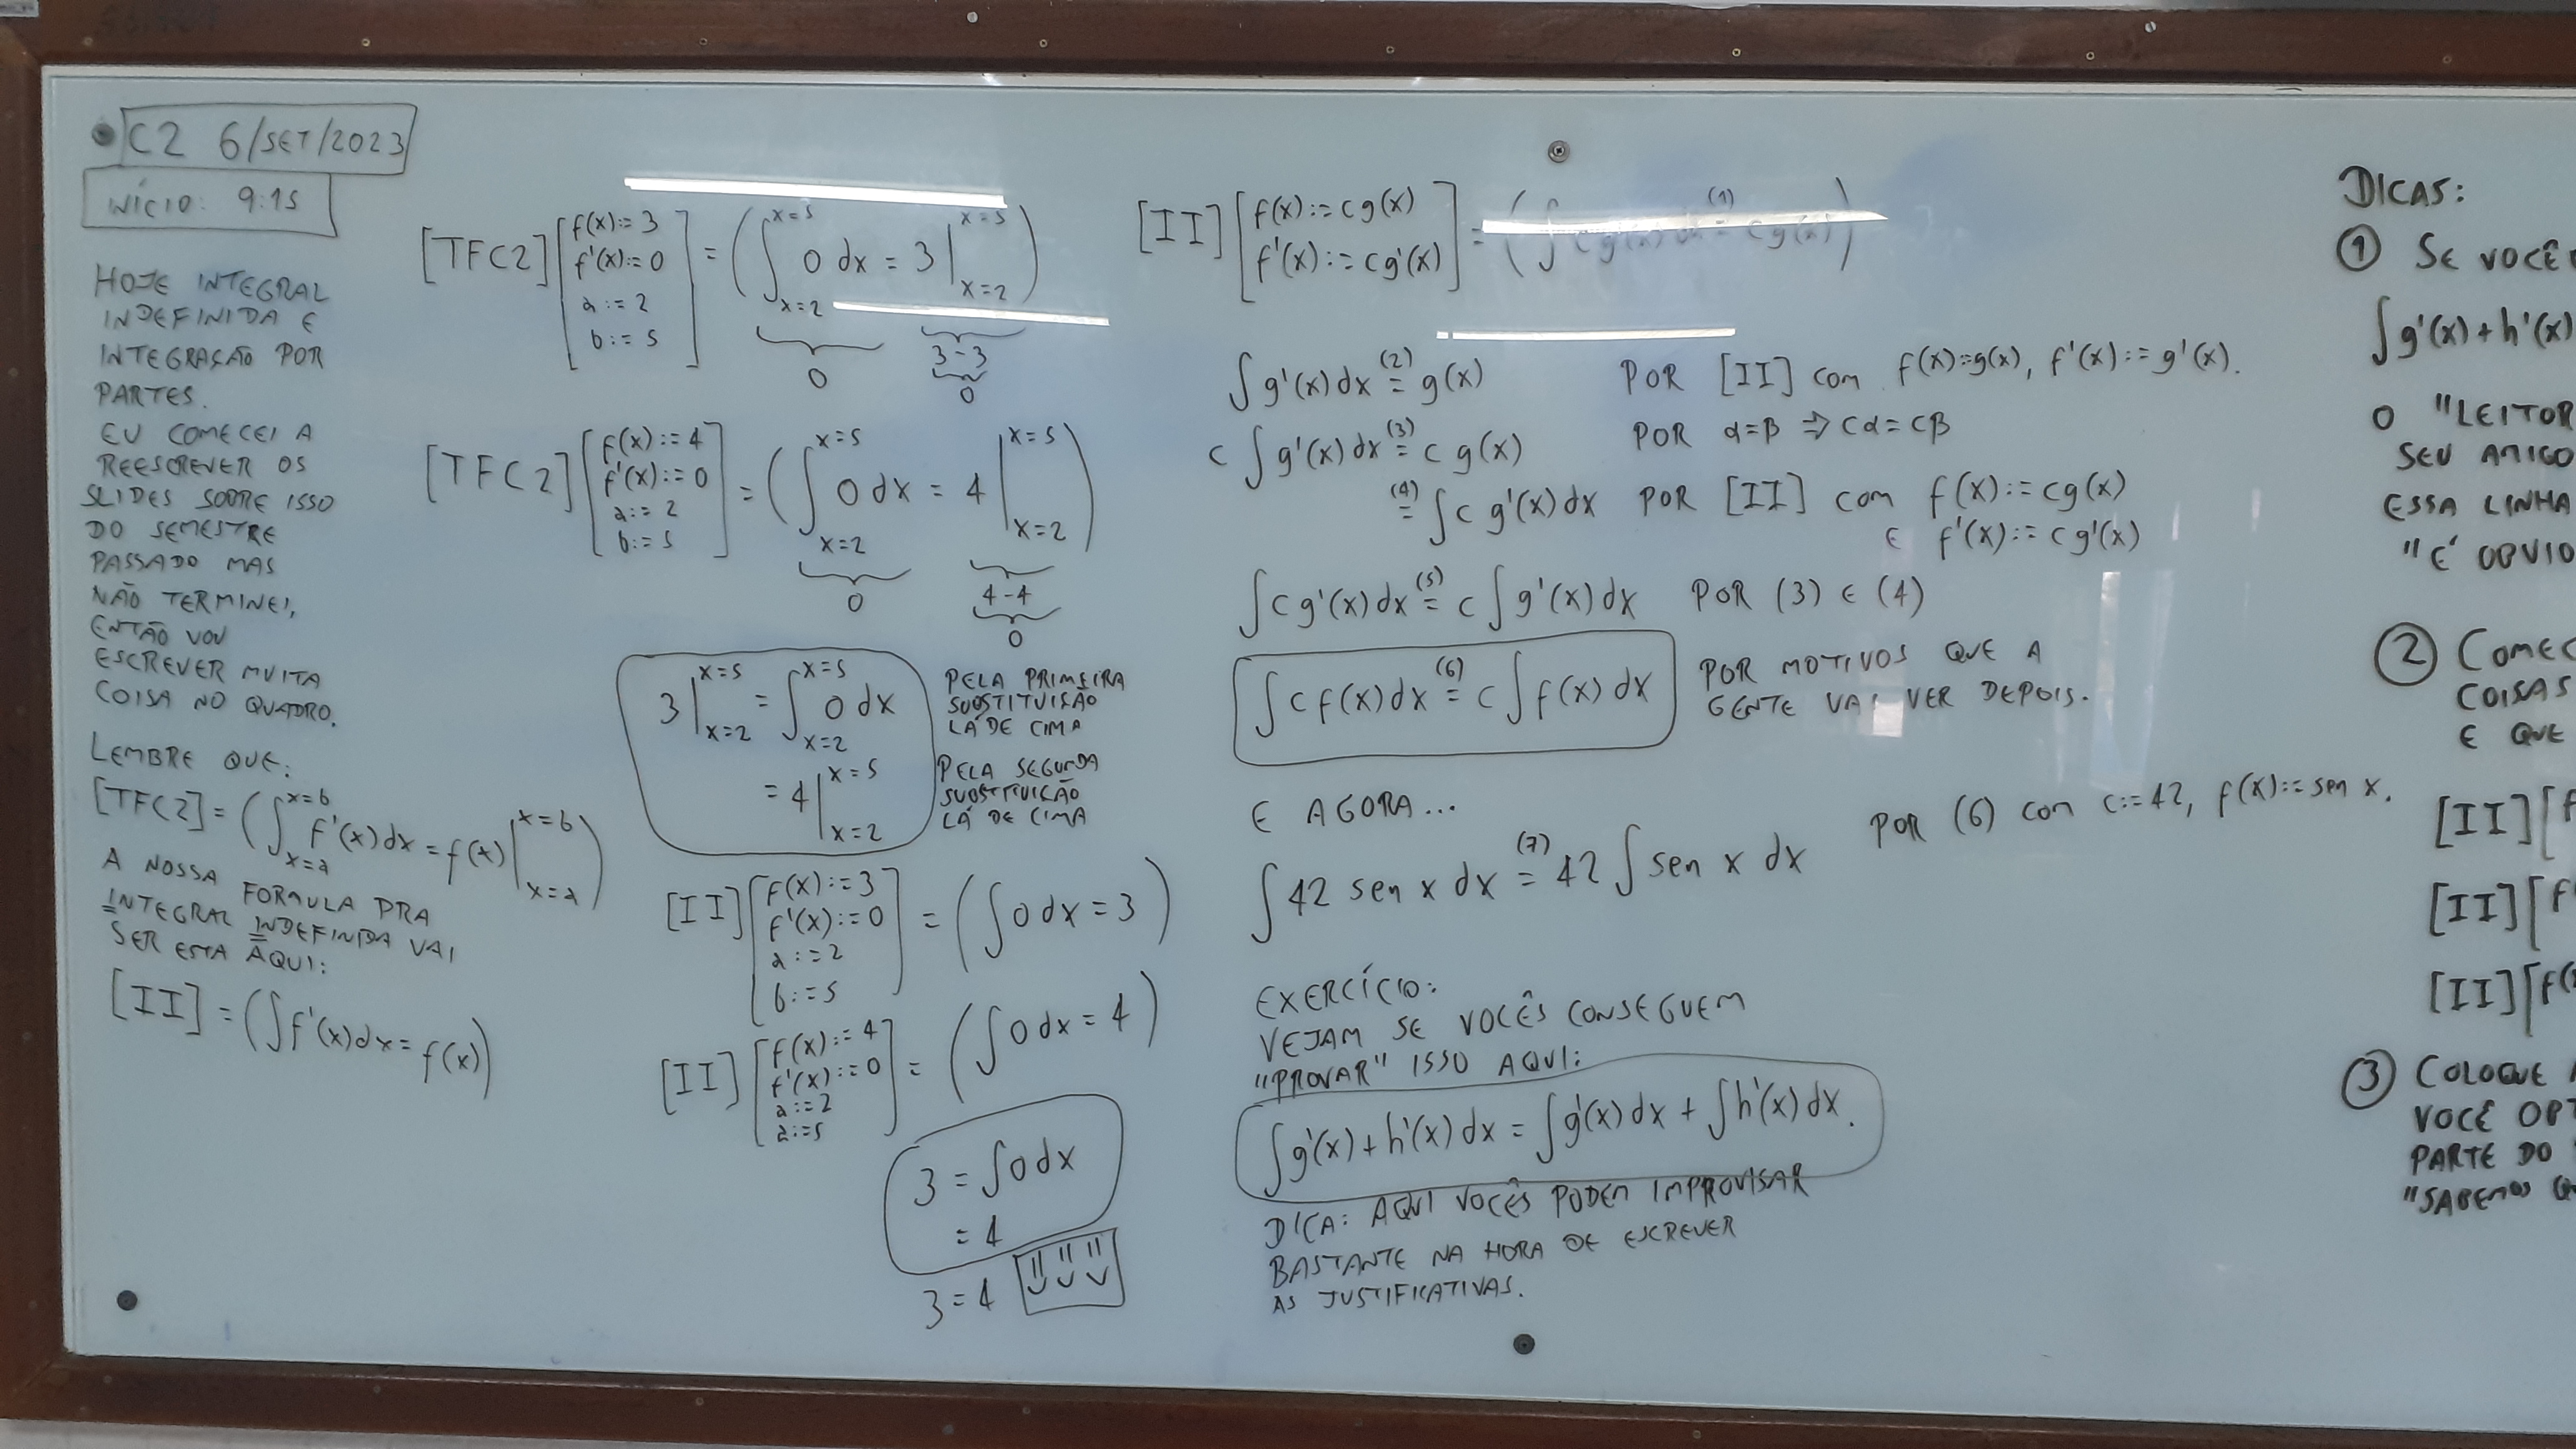 C2 6/SET/2023
INÍCIO: 9:15
HOJE INTEGRAL
INDEFINIDA E
INTEGRAÇÃO POR
PARTES.
EU COMECEI A
REESCREVER OS
SLIDES SOBRE ISSO
DO SEMESTRE
PASSADO MAS
NÃO TERMINEI,
ENTÃO VOU
ESCREVER MUITA
COISA NO QUADRO.
LEMBRE QUE:
[TFC2] = (∫_{x=a}^{x=b} f'(x) dx = f(x)|_{x=a}^{x=b})
A NOSSA FÓRMULA PRA
INTEGRAL INDEFINIDA VAI
SER ESTA AQUI:
[II] = (∫f'(x)dx = f(x))
[TFC2] [f(x):=3
f'(x):=0
a:=2
b:=5] = (∫_{x=2}^{x=5} 0 dx = 3|_{x=2}^{x=5})
0
3-3
0
[TFC2] [f(x):=4
f'(x):=0
a:=2
b:=5] = (∫_{x=2}^{x=5} 0 dx = 4|_{x=2}^{x=5})
0
4-4
0
3|_{x=2}^{x=5} = ∫_{x=2}^{x=5} 0 dx
PELA PRIMEIRA
SUBSTITUIÇÃO
LÁ DE CIMA
= 4|_{x=2}^{x=5}
PELA SEGUNDA
SUBSTITUIÇÃO
LÁ DE CIMA
[II] [f(x):=3
f'(x):=0
a:=2
b:=5] = (∫0 dx = 3)
[II] [f(x):=4
f'(x):=0
a:=2
a:=5] = (∫0 dx = 4)
3 = ∫0 dx
= 4
3 = 4
[II] [f(x):=cg(x)
f'(x):=cg'(x)] = (∫cg'(x) dx (1)= cg(x))
∫g'(x)dx (2)= g(x) POR [II] COM f(x):=g(x), f'(x):=g'(x).
c∫g'(x)dx (3)= c g(x) POR α=β ⇒ cα=cβ
(4)= ∫c g'(x)dx POR [II] COM f(x):=cg(x)
E f'(x):=cg'(x)
∫cg'(x)dx (5)= c∫g'(x)dx POR (3) E (4)
∫cf(x)dx (6)= c∫f(x)dx
POR MOTIVOS QUE A
GENTE VAI VER DEPOIS.
E AGORA...
∫42 sen x dx (7)= 42∫sen x dx POR (6) COM c:=42, f(x):=sen x.
EXERCÍCIO:
VEJAM SE VOCÊS CONSEGUEM
"PROVAR" ISSO AQUI:
∫g'(x)+h'(x)dx = ∫g'(x)dx + ∫h'(x)dx.
DICA: AQUI VOCÊS PODEM IMPROVISAR
BASTANTE NA HORA DE ESCREVER
AS JUSTIFICATIVAS.
DICAS:
① SE VOCÊ
∫g'(x)+h'(x)
O "LEITOR
SEU AMIGO
ESSA LINHA
"É OBVIO
②
COISAS
E QUE
[II] [f
[II] [f
[II] [f(
③ COLOQUE
VOCÊ
PARTE DO
"SABEMOS